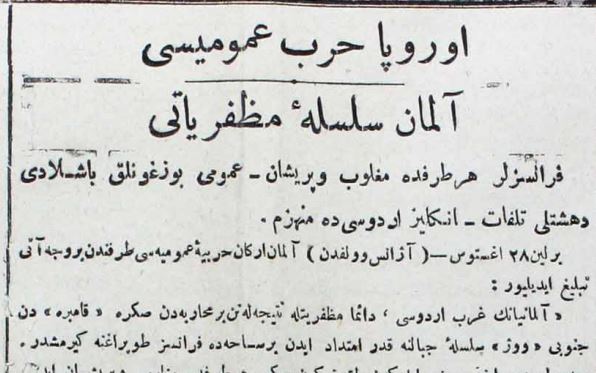 اوروپا حرب عمومیسی
آلمان سلسلهٔ مظفریاتی
فرانسزلر هرطرفده مغلوب وپریشان ـ عمومی بوزغونلق باشـلادی
دهشتلی تلفات ـ انكلیز اردوسی ده منهزم .
برلین ٢٨ اغستوس —( آژانس وولفدن ) آلمان اركان حربیهٔ عمومیه سی طرفندن بروجه آتی
تبلیغ ایدیلیور :
« آلمانیانك غرب اردوسی ، دائما مظفریتله نتیجه له نن برمحاربه دن صكره « قامبره » دن
جنوبی « ووژ » سلسلهٔ جبالنه قدر امتداد ایدن برساحه ده فرانسز طوپراغنه كیرمشدر .